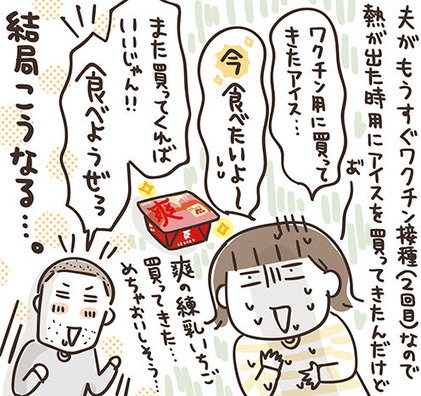 夫がもうすぐワクチン接種(2回目)なので
熱が出た時用にアイスを買ってきたんだけど
ワクチン用に買って
きたアイス…
今
食べたいよ〜
また買ってくれば
いいじゃん!!
食べようぜろっ
結局こうなる…。
爽
爽の練乳いちご
買ってきた…
めちゃおいしそう…